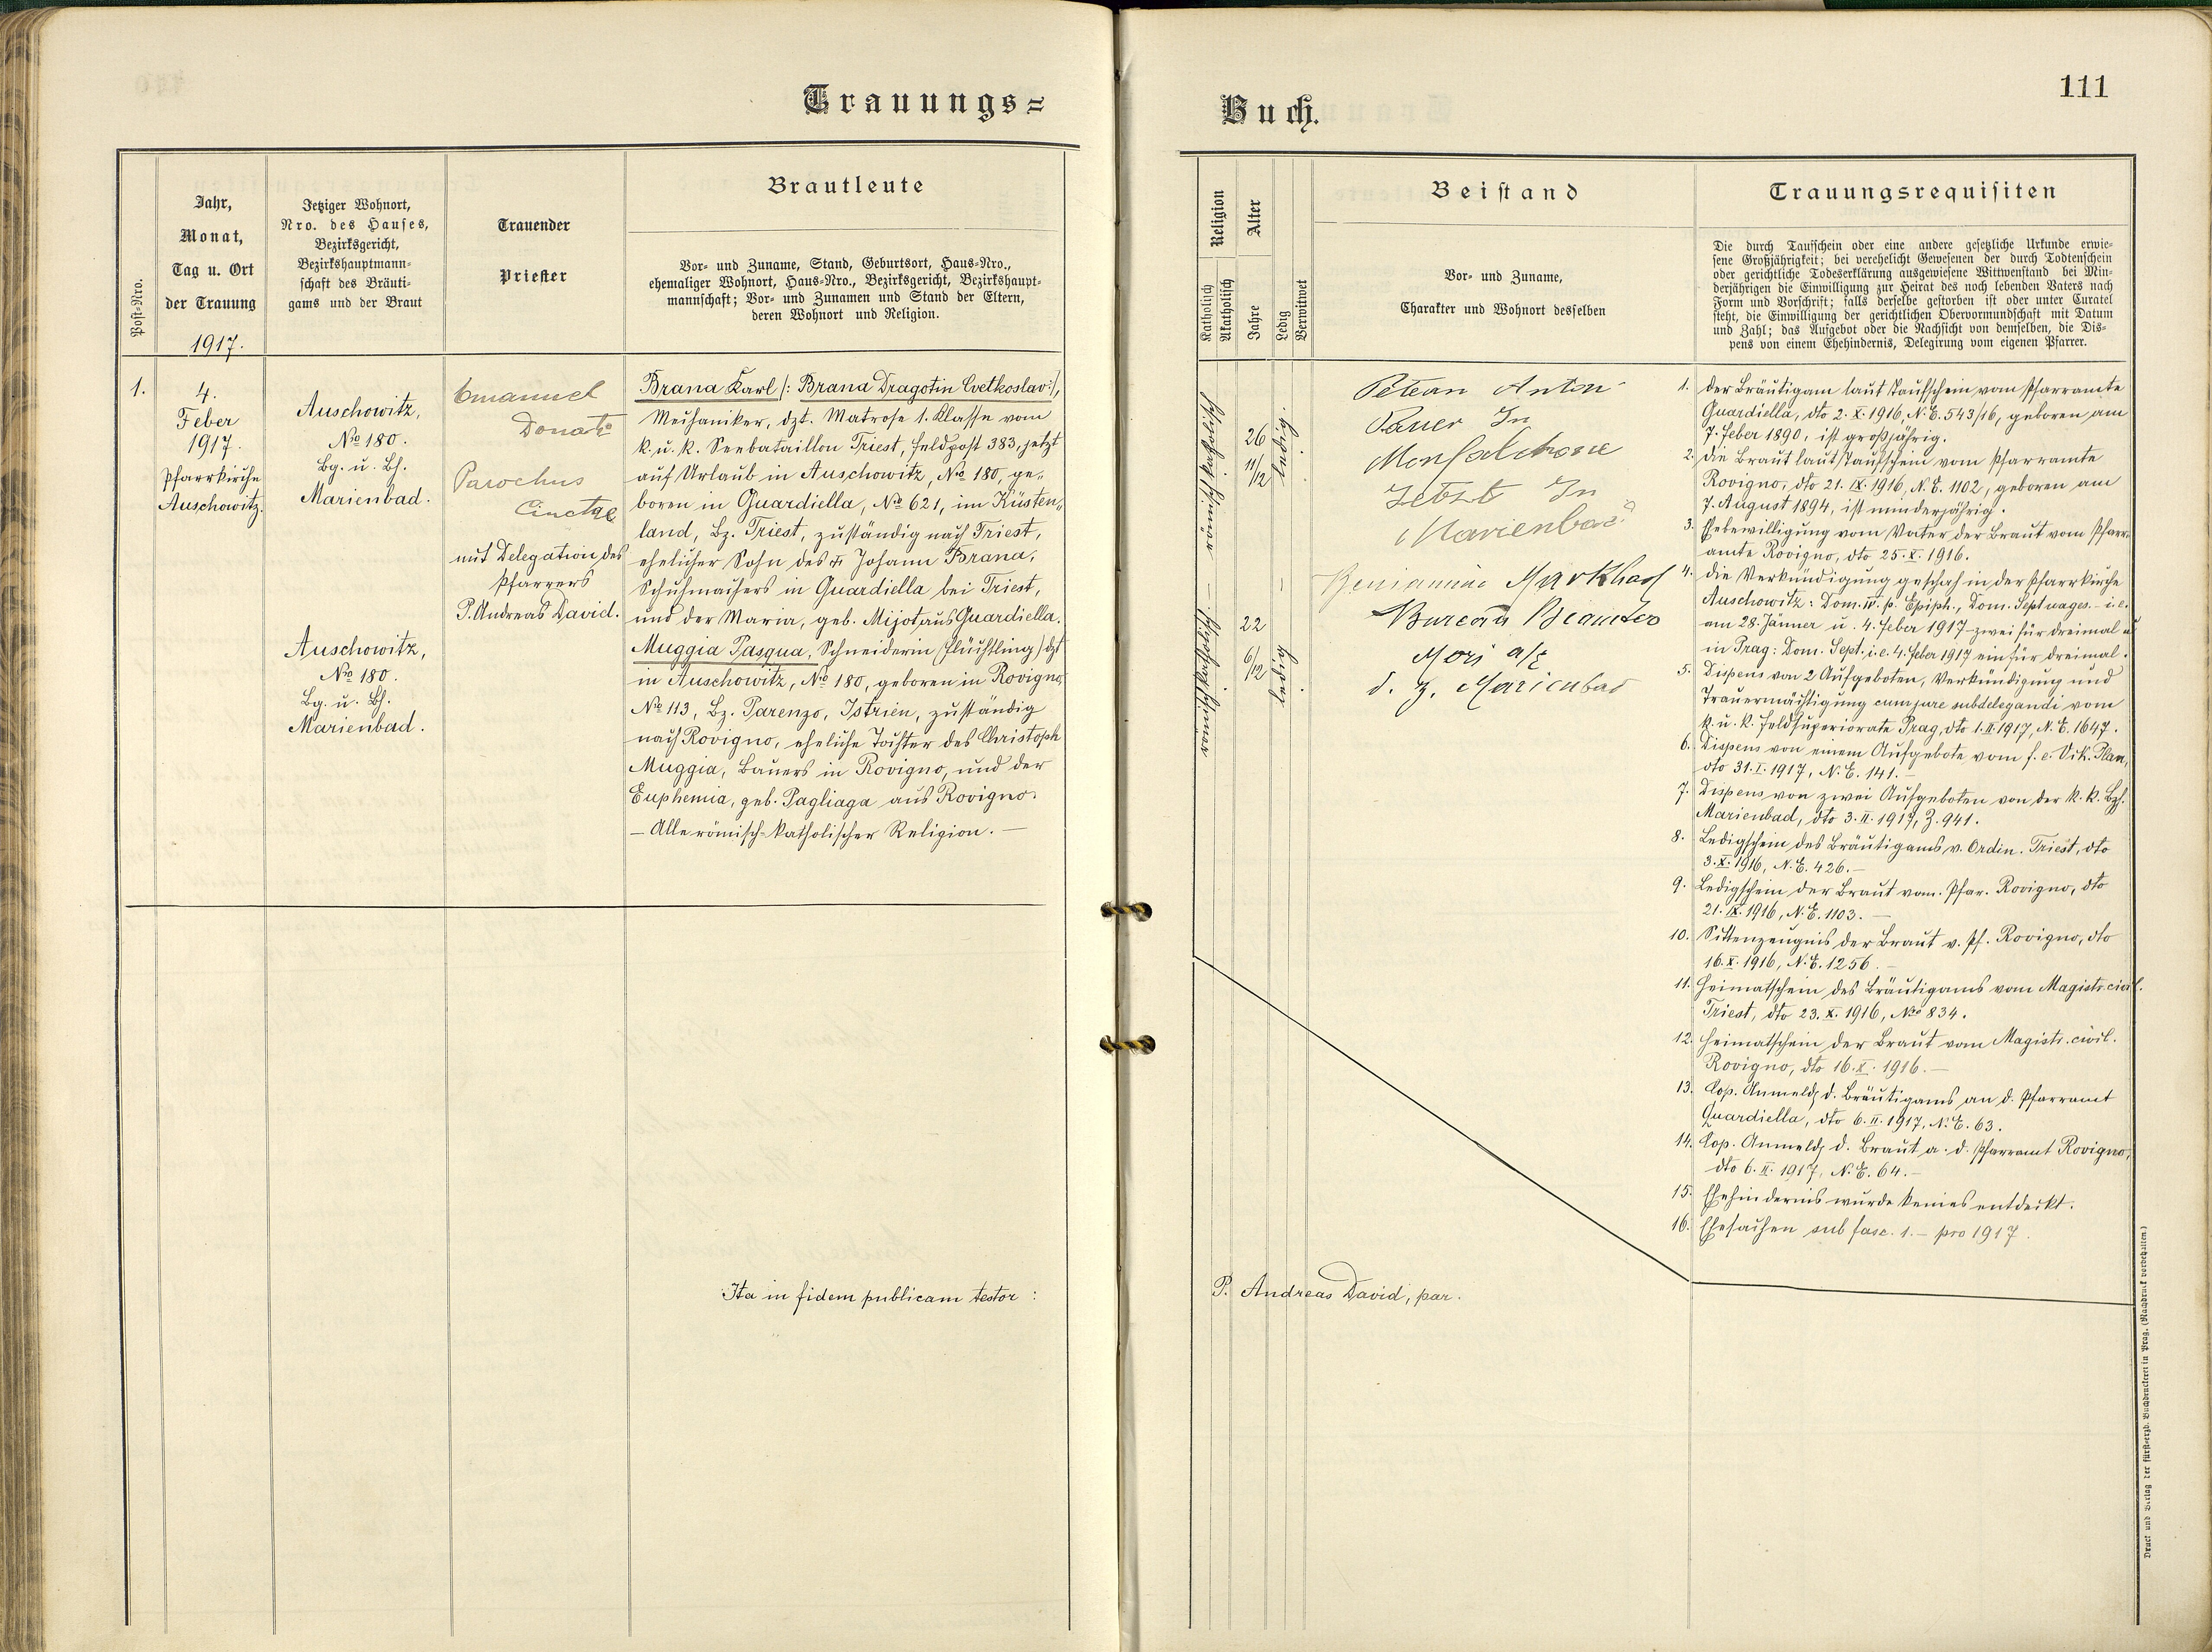 Trauungs=
Buch.
111
Post-Nro.
Jahr,
Monat,
Tag u. Ort
der Trauung
1917.
Jetziger Wohnort,
Nro. des Hauses,
Bezirksgericht,
Bezirkshauptmann-
schaft des Bräuti-
gams und der Braut
Trauender
Priester
Brautleute
Vor- und Zuname, Stand, Geburtsort, Haus-Nro.,
ehemaliger Wohnort, Haus-Nro., Bezirksgericht, Bezirkshaupt-
mannschaft; Vor- und Zunamen und Stand der Eltern,
deren Wohnort und Religion.
1.
4.
Feber
1917.
Pfarrkirche
Auschowitz.
Auschowitz,
No 180.
Bg. u. Bh.
Marienbad.
Auschowitz,
No 180.
Bg. u. Bh.
Marienbad.
Emanuel
Donati
Parochus
mit Delegation des
Pfarrers
P. Andreas David.
Brana Karl /: Brana Dragotin Cvetkoslav :/,
Mechaniker, dzt. Matrose 1. Klasse vom
k. u. k. Seebataillon Triest, Feldpost 383, jetzt
auf Urlaub in Auschowitz, No 180, ge„
boren in Guardiella, No 621, im Küsten„
land, Bz. Triest, zuständig nach Triest,
ehelicher Sohn des Johann Brana,
Schuhmachers in Guardiella bei Triest,
und der Maria, geb. Mijot aus Guardiella.
Muggia Pasqua, Schneiderin (Flüchtling) dzt
in Auschowitz, No 180, geboren in Rovigno,
No 113, Bz. Parenzo, Istrien, zuständig
nach Rovigno, eheliche Tochter des Christoph
Muggia, Bauers in Rovigno, und der
Euphemia, geb. Pagliaga aus Rovigno.
— Alle römisch-katholischer Religion. —
Ita in fidem publicam testor :
P. Andreas David, par.
Religion
Katholisch
Akatholisch
Alter
Jahre
Ledig
Verwitwet
26
11/12
ledig.
22
6/12
ledig
Beistand
Vor- und Zuname,
Charakter und Wohnort desselben
Petean Anton
In
Monfalchone
Jetzt In
Marienbad
Beniamino
Bureau Beamter
Mori a/E
d. Z. Marienbad
Trauungsrequisiten
Die durch Taufschein oder eine andere gesetzliche Urkunde erwie-
sene Großjährigkeit; bei verehelicht Gewesenen der durch Todtenschein
oder gerichtliche Todeserklärung ausgewiesene Wittwenstand bei Min-
derjährigen die Einwilligung zur Heirat des noch lebenden Vaters nach
Form und Vorschrift; falls derselbe gestorben ist oder unter Curatel
steht, die Einwilligung der gerichtlichen Obervormundschaft mit Datum
und Zahl; das Aufgebot oder die Nachsicht von demselben, die Dis-
pens von einem Ehehindernis, Delegirung vom eigenen Pfarrer.
1. der Bräutigam laut Taufschein vom Pfarramte
Guardiella, dto 2. X. 1916, N. E. 543/16, geboren am
7. Feber 1890, ist großjährig.
2. die Braut laut Taufschein vom Pfarramte
Rovigno, dto 21. IX. 1916, N. E. 1102, geboren am
7. August 1894, ist minderjährig.
3. Ehebewilligung vom Vater der Braut vom Pfarr-
amte Rovigno, dto 25. X. 1916.
4. die Verkündigung geschah in der Pfarrkirche
Auschowitz: Dom. IV. p. Epiph., Dom. Septuages. – i. e.
am 28. Jänner u. 4. Feber 1917 – zwei für dreimal u
in Prag: Dom. Sept. i. e. 4. Feber 1917 ein für dreimal.
5. Dispens von 2 Aufgeboten, Verkündigung und
Trauermächtigung cum jure subdelegandi vom
k. u. k. Feldsuperiorate Prag, dto 1. II. 1917, N. E. 1647.
6. Dispens von einem Aufgebote vom f. e. Vik. Plan,
dto 31. I. 1917, N. E. 141. –
7. Dispens von zwei Aufgeboten von der k. k. Bzh.
Marienbad, dto 3. II. 1917, Z. 941.
8. Ledigschein des Bräutigams v. Ordin. Triest, dto
3. X. 1916, N. E. 426. –
9. Ledigschein der Braut vom. Pfar. Rovigno, dto
21. IX. 1916, N. E. 1103. —
10. Sittenzeugnis der Braut v. Pf. Rovigno, dto
16. X. 1916, N. E. 1256. –
11. Heimatschein des Bräutigams vom Magistr. civil.
Triest, dto 23. X. 1916, No 834.
12. Heimatschein der Braut vom Magistr. civil.
Rovigno, dto 16. X. 1916. —
13. Cop. Anmeldg d. Bräutigams an d. Pfarramt
Guardiella, dto 6. II. 1917, N. E. 63.
14. Cop. Anmeldg d. Braut a. d. Pfarramt Rovigno,
dto 6. II. 1917, N. E. 64. –
15. Ehehindernis wurde keines entdeckt.
16. Ehesachen sub fasc. 1. – pro 1917.
Druck und Verlag der fürst-erzb. Buchdruckerei in Prag. (Nachdruck vorbehalten.)